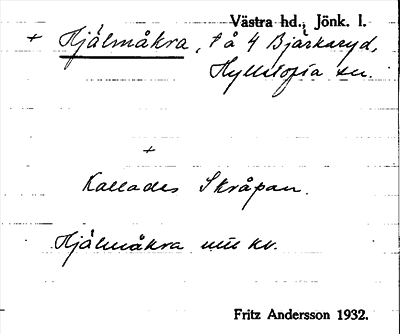 Västra hd., Jönk. l.
+ Hjälmåkra, t å 4 Bjärkaryd,
Hyllstofta sn.
+
Kallades Skråpan.
Hjälmåkra kv.
Fritz Andersson 1932.